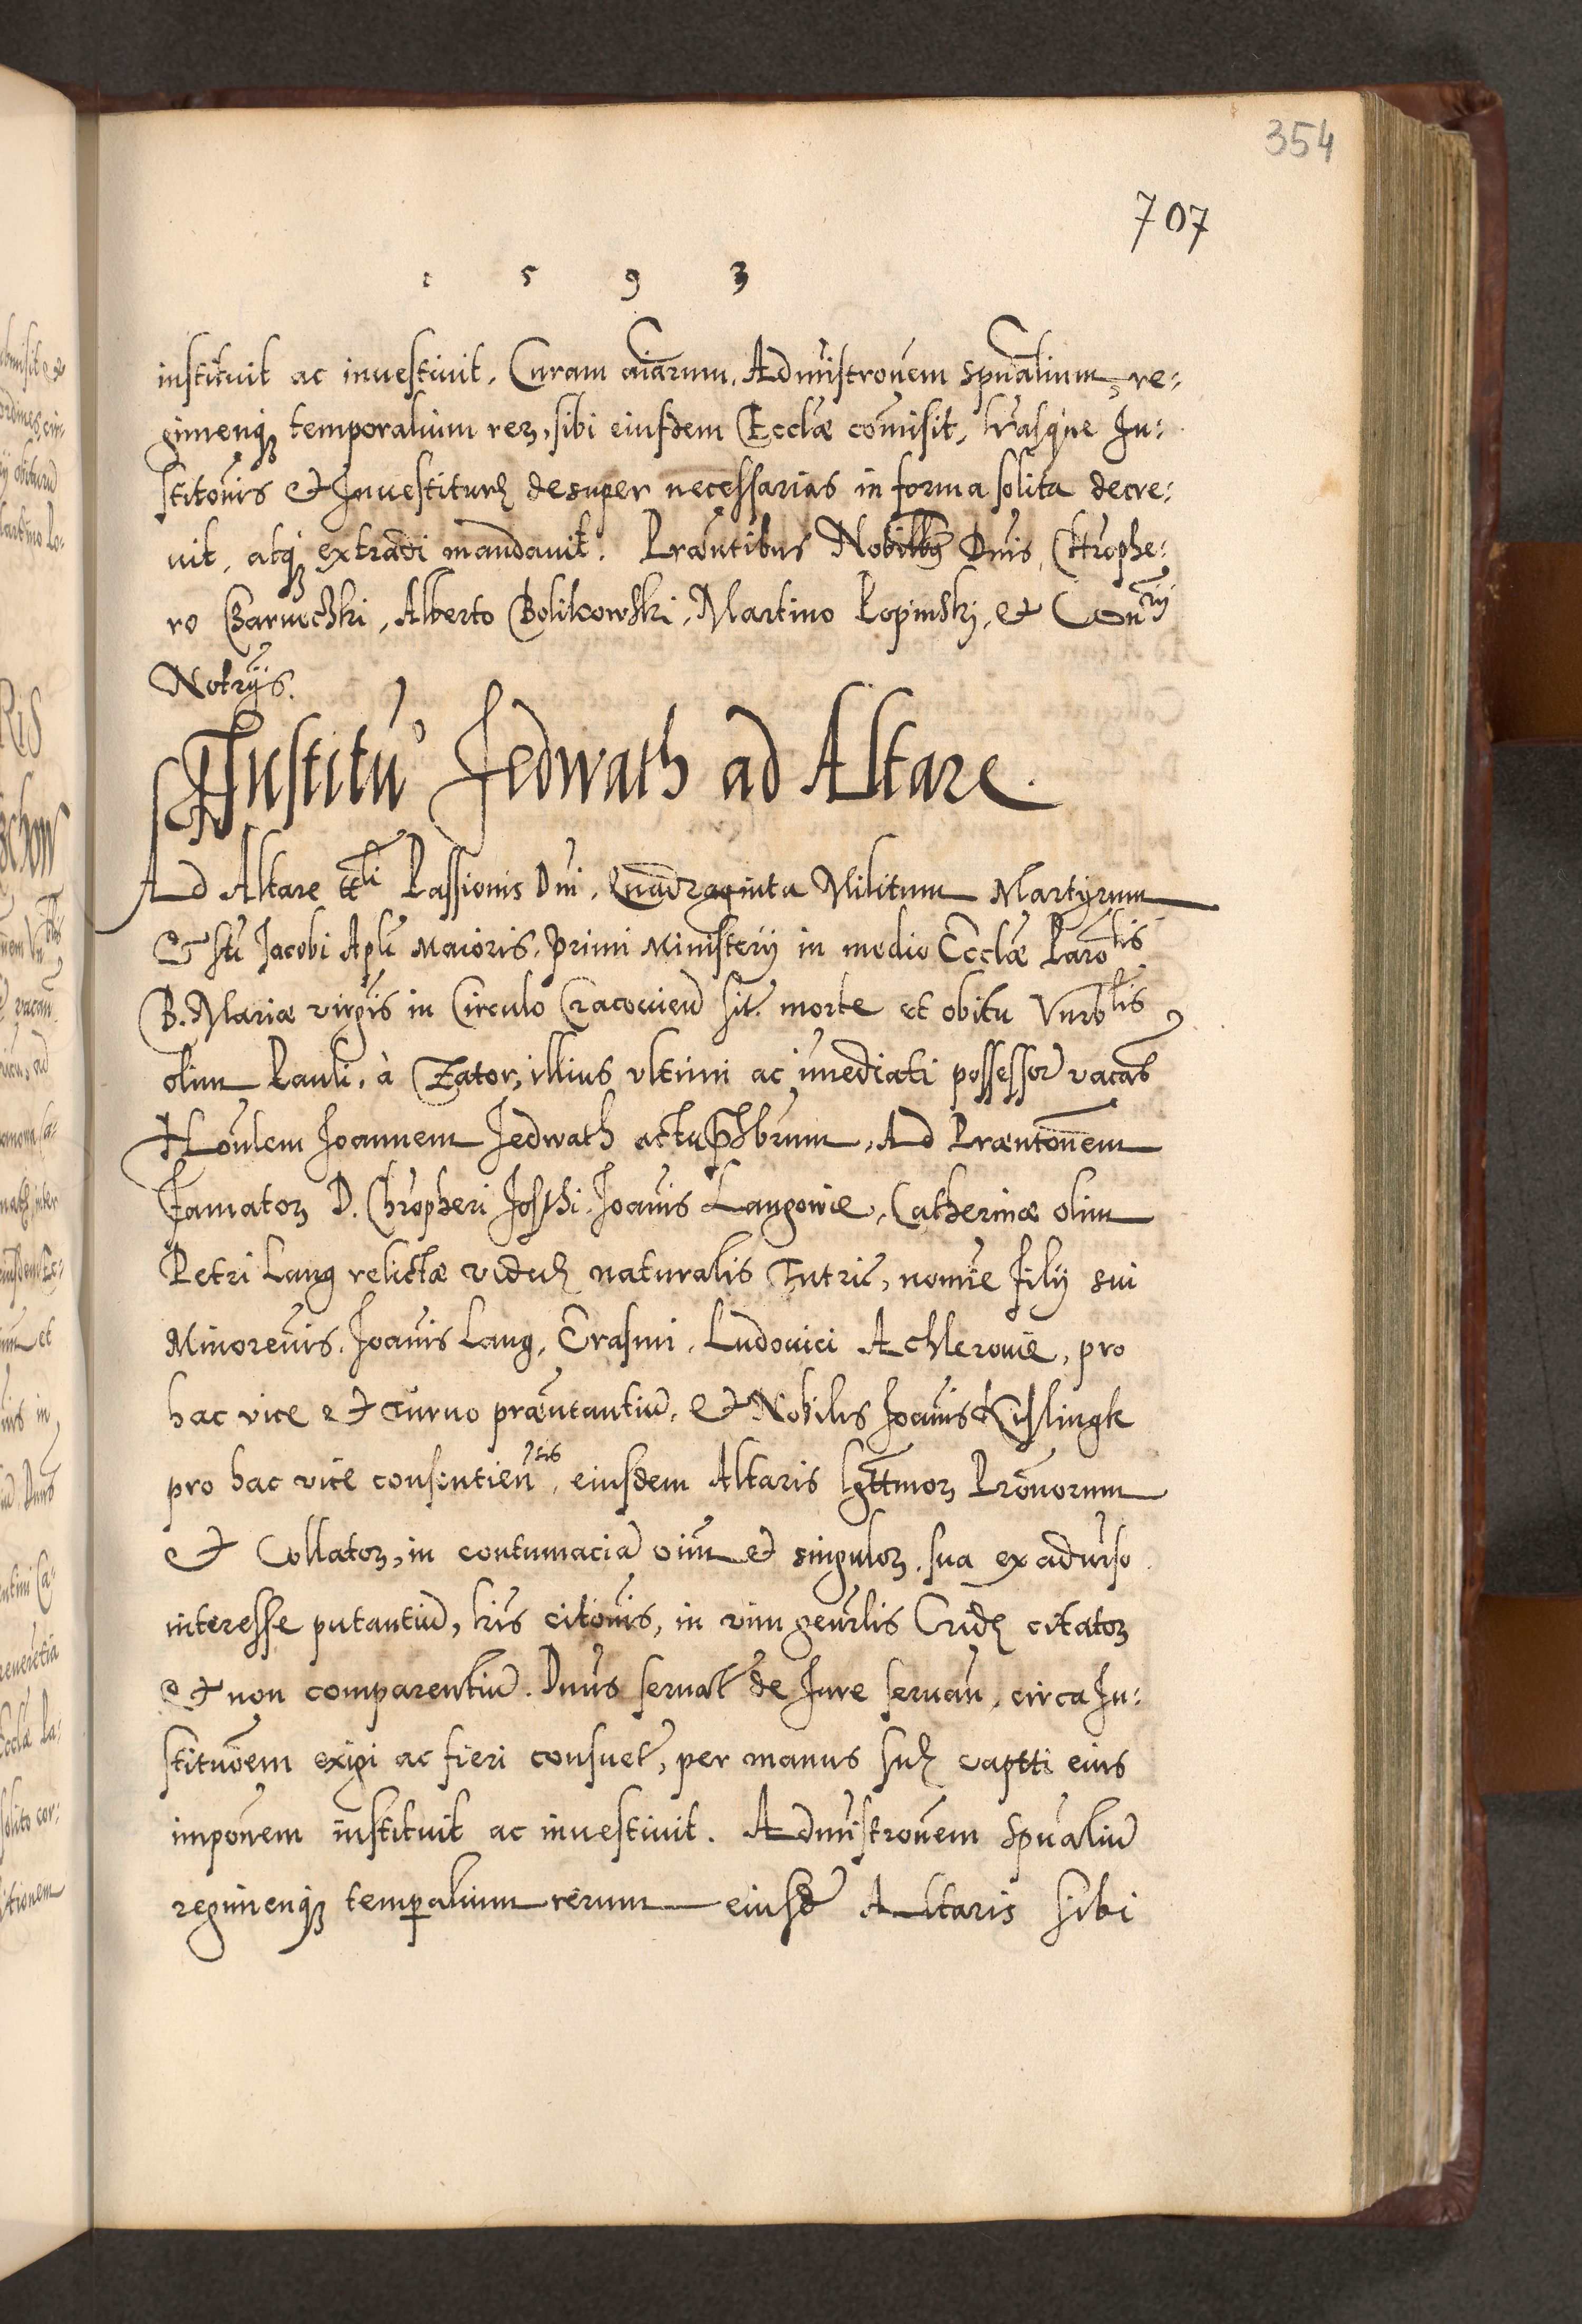 354
707
1 5 9 3
instituit ac inuestiuit, Curam aīarum, Admīstrōnem spūalium, re:
gimenq̢ temporalium rerꝫ, sibi eiusdem Ecclæ com̄isit, Lrāsque In:
stitōnis et Inuestituræ desuper necessarias in forma solita decre:
uit, atq̢ extradi mandauit. Præntibus Nobilibꝰ Dnīs, Chrophe:
ro Alberto Bolikowski, Martino Popinski, et
Notrijs.
Institū Jedwath ad Altare.
Ad Altare tt̄li Passionis Dnī, Quadraginta Militum Martyrum
et Stī Jacobi Aplī Maioris, Primi Ministerij in medio Ecclæ Paro͞lis
B. Mariæ virgīs in Circulo Cracouien̄ sit: morte et obitu
olim Pauli, à Zator, illius vltimi ac im̄ediati possessor̄ vacan̄
Hon̄lem Joannem Jedwath actu Pbrum, Ad Præntōnem
Famatorꝫ D. Chropheri Josphi, Joañis Langowie, Catherinæ olim
Petri Lang relictæ viduæ naturalis Tutric̄, nomīe filij sui
Minorenīs, Joañis Lang, Erasmi, Ludouici Achlerowie, pro
hac vice et turno præntantiū, et Nobilis Joañis Kislingk
pro hac vice consentien̄tis, eiusdem Altaris lgttmorꝫ Prōnorum
et Collatorꝫ, in contumaciā oīm et singulorꝫ sua ex aduerso
interesse putantiū, Lrīs citōnis, in vim genrlis Cridæ citatorꝫ
et non comparentiū. Dnūs seruat̄ de Jure seruan̄, circa In:
stitūōem exigi ac fieri consuet̄, per manus suæ captti eius
imponem instituit ac inuestiuit. Admīstrōnem spūaliū
regimenq̢ temꝑalium rerum eiusdē Altaris sibi